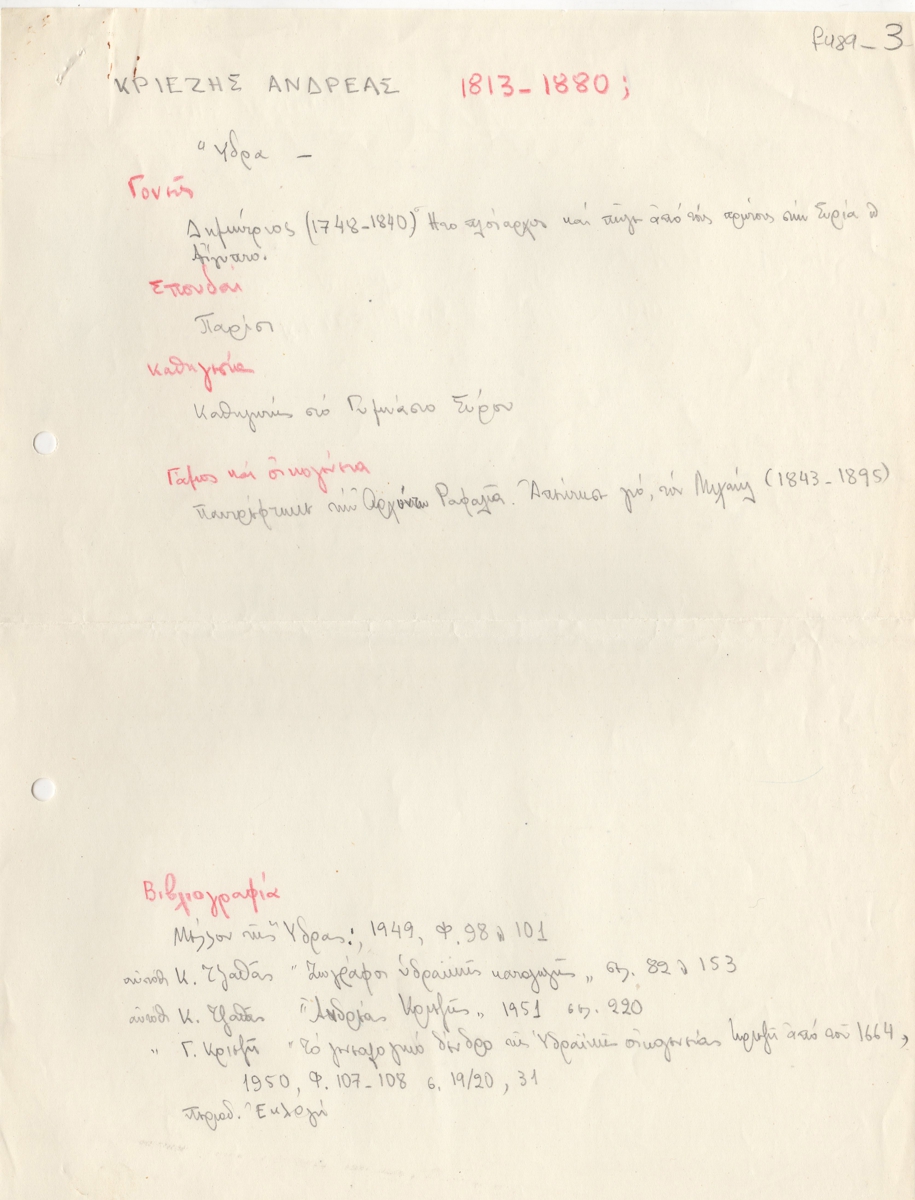 f489-3
ΚΡΙΕΖΗΣ ΑΝΔΡΕΑΣ 1813-1880;
Ὕδρα —
Γονεῖς
Δημήτριος (1748-1840) Ἦτο πλοίαρχος καί πῆγε ἀπό τούς πρώτους στήν Συρία
Αἴγυπτο.
Σπουδαί
Παρίσι
Καθηγεσία
Καθηγητής στό Γυμνάσιο Σύρου
Γάμος καί οἰκογένεια
παντρεύτηκε τήν Ραφαλιᾶ. Ἀπέκτησε γιό, τόν Μιχαήλ (1843-1895)
Βιβλιογραφία
Μέλλον τῆς Ὕδρας, 1949, Φ. 98 101
Κ. Τζαθᾶς "Ζωγράφοι ὑδραϊκῆς καταγωγῆς" σελ. 82 153
Κ. "Ἀνδρέας Κριεζῆς" 1951 σελ. 220
" Γ. Κριεζῆ "Τό γενεαλογικό δένδρο τῆς Ὑδραϊκῆς οἰκογενείας Κριεζῆ ἀπό τοῦ 1664,
1950, Φ. 107-108 σ. 19/20, 31
περιοδ. Ἐκλογή